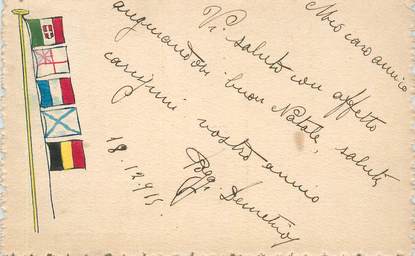 Mio caro amico
Vi saluto con affetto
augurandovi buon Natale, saluti
carissimi vostro amico
Demetrio
18.12.915.